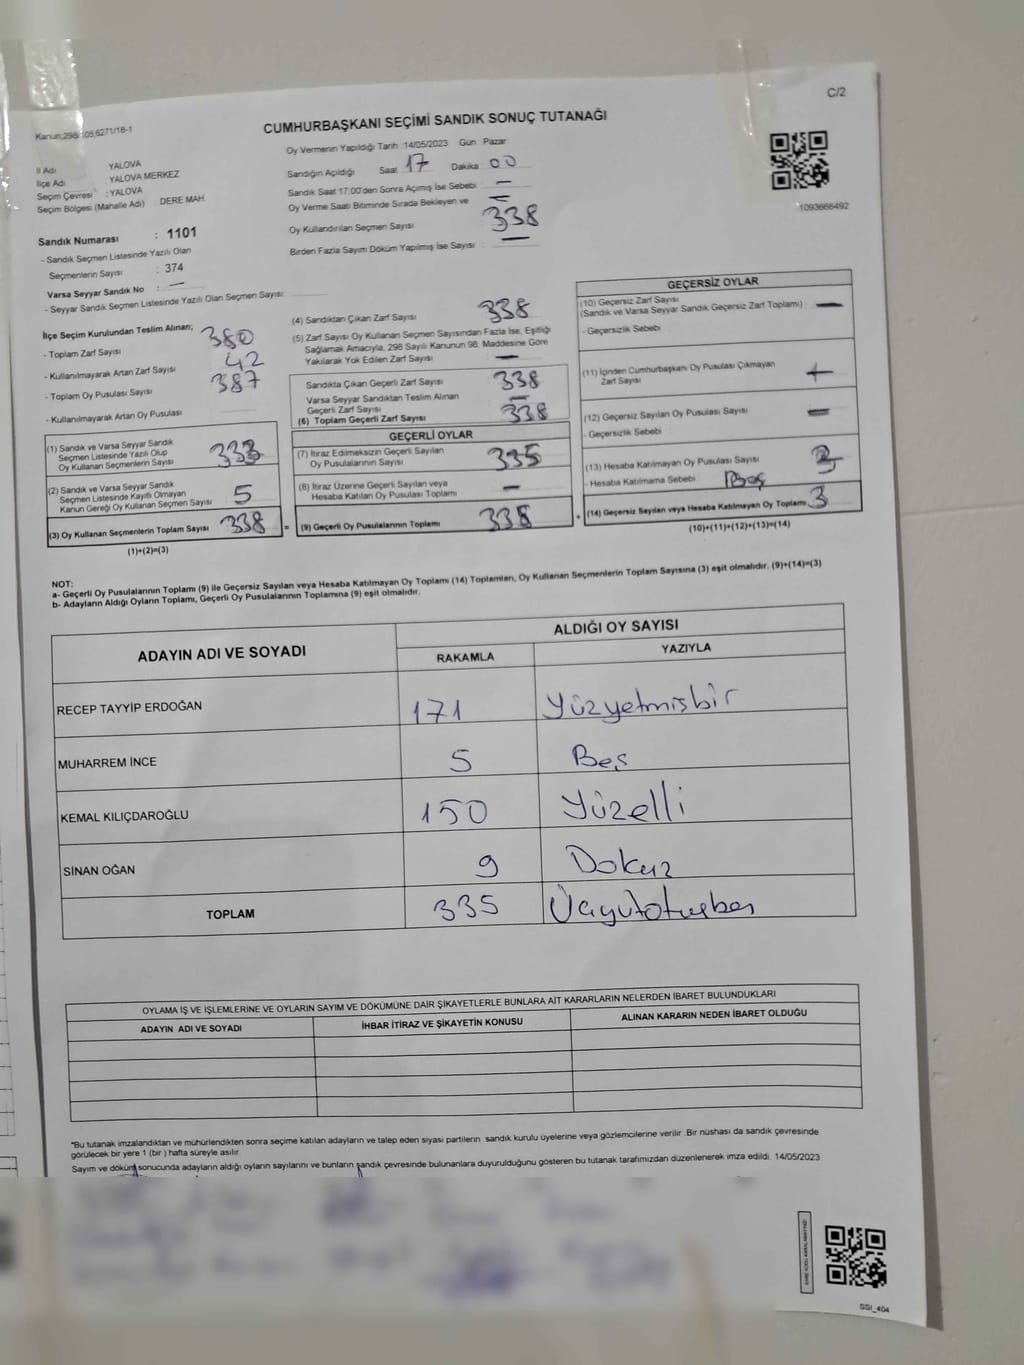 C/2
Kanun:298/105;6271/18-1
CUMHURBAŞKANI SEÇİMİ SANDIK SONUÇ TUTANAĞI
Oy Vermenin Yapıldığı Tarih 14/05/2023 Gün Pazar
İl Adı YALOVA
İlçe Adı YALOVA MERKEZ
Seçim Çevresi : YALOVA
Seçim Bölgesi (Mahalle Adı) DERE MAH.
Sandığın Açıldığı Saat 17 Dakika 00
Sandık Saat 17:00'den Sonra Açımış İse Sebebi —
Oy Verme Saati Bitiminde Sırada Bekleyen ve —
Oy Kullandırılan Seçmen Sayısı 338
Birden Fazla Sayım Döküm Yapılmış İse Sayısı —
1093666492
Sandık Numarası : 1101
- Sandık Seçmen Listesinde Yazılı Olan
Seçmenlerin Sayısı : 374
Varsa Seyyar Sandık No : —
- Seyyar Sandık Seçmen Listesinde Yazılı Olan Seçmen Sayısı:
İlçe Seçim Kurulundan Teslim Alınan;
- Toplam Zarf Sayısı 380
- Kullanılmayarak Artan Zarf Sayısı 42
- Toplam Oy Pusulası Sayısı 387
- Kullanılmayarak Artan Oy Pusulası
(1) Sandık ve Varsa Seyyar Sandık
Seçmen Listesinde Yazılı Olup
Oy Kullanan Seçmenlerin Sayısı 333
(2) Sandık ve Varsa Seyyar Sandık
Seçmen Listesinde Kayıtlı Olmayan
Kanun Gereği Oy Kullanan Seçmen Sayısı 5
(3) Oy Kullanan Seçmenlerin Toplam Sayısı 338 =
(1)+(2)=(3)
(4) Sandıktan Çıkan Zarf Sayısı 338
(5) Zarf Sayısı Oy Kullanan Seçmen Sayısından Fazla İse, Eşitliği
Sağlamak Amacıyla, 298 Sayılı Kanunun 98. Maddesine Göre
Yakılarak Yok Edilen Zarf Sayısı —
Sandıkta Çıkan Geçerli Zarf Sayısı 338
Varsa Seyyar Sandıktan Teslim Alınan
Geçerli Zarf Sayısı —
(6) Toplam Geçerli Zarf Sayısı 338
GEÇERLİ OYLAR
(7) İtiraz Edilmeksizin Geçerli Sayılan
Oy Pusulalarının Sayısı 335
(8) İtiraz Üzerine Geçerli Sayılan veya
Hesaba Katılan Oy Pusulası Toplamı —
(9) Geçerli Oy Pusulalarının Toplamı 338 +
GEÇERSİZ OYLAR
(10) Geçersiz Zarf Sayısı
(Sandık ve Varsa Seyyar Sandık Geçersiz Zarf Toplamı) : —
- Geçersizlik Sebebi
(11) İçinden Cumhurbaşkanı Oy Pusulası Çıkmayan
Zarf Sayısı
(12) Geçersiz Sayılan Oy Pusulası Sayısı —
- Geçersizlik Sebebi
(13) Hesaba Katılmayan Oy Pusulası Sayısı 3
- Hesaba Katılmama Sebebi Boş
(14) Geçersiz Sayılan veya Hesaba Katılmayan Oy Toplamı 3
(10)+(11)+(12)+(13)=(14)
NOT:
a- Geçerli Oy Pusulalarının Toplamı (9) ile Geçersiz Sayılan veya Hesaba Katılmayan Oy Toplamı (14) Toplamları, Oy Kullanan Seçmenlerin Toplam Sayısına (3) eşit olmalıdır. (9)+(14)=(3)
b- Adayların Aldığı Oyların Toplamı, Geçerli Oy Pusulalarının Toplamına (9) eşit olmalıdır.
ADAYIN ADI VE SOYADI
ALDIĞI OY SAYISI
RAKAMLA YAZIYLA
RECEP TAYYİP ERDOĞAN 171 Yüzyetmişbir
MUHARREM İNCE 5 Beş
KEMAL KILIÇDAROĞLU 150 Yüzelli
SİNAN OĞAN 9 Dokuz
TOPLAM 335
OYLAMA İŞ VE İŞLEMLERİNE VE OYLARIN SAYIM VE DÖKÜMÜNE DAİR ŞİKAYETLERLE BUNLARA AİT KARARLARIN NELERDEN İBARET BULUNDUKLARI
ADAYIN ADI VE SOYADI İHBAR İTİRAZ VE ŞİKAYETİN KONUSU ALINAN KARARIN NEDEN İBARET OLDUĞU
*Bu tutanak imzalandıktan ve mühürlendikten sonra seçime katılan adayların ve talep eden siyasi partilerin sandık kurulu üyelerine veya gözlemcilerine verilir. Bir nüshası da sandık çevresinde
görülecek bir yere 1 (bir) hafta süreyle asılır
Sayım ve döküm sonucunda adayların aldığı oyların sayılarını ve bunların sandık çevresinde bulunanlara duyurulduğunu gösteren bu tutanak tarafımızdan düzenlenerek imza edildi. 14/05/2023
SSI_404